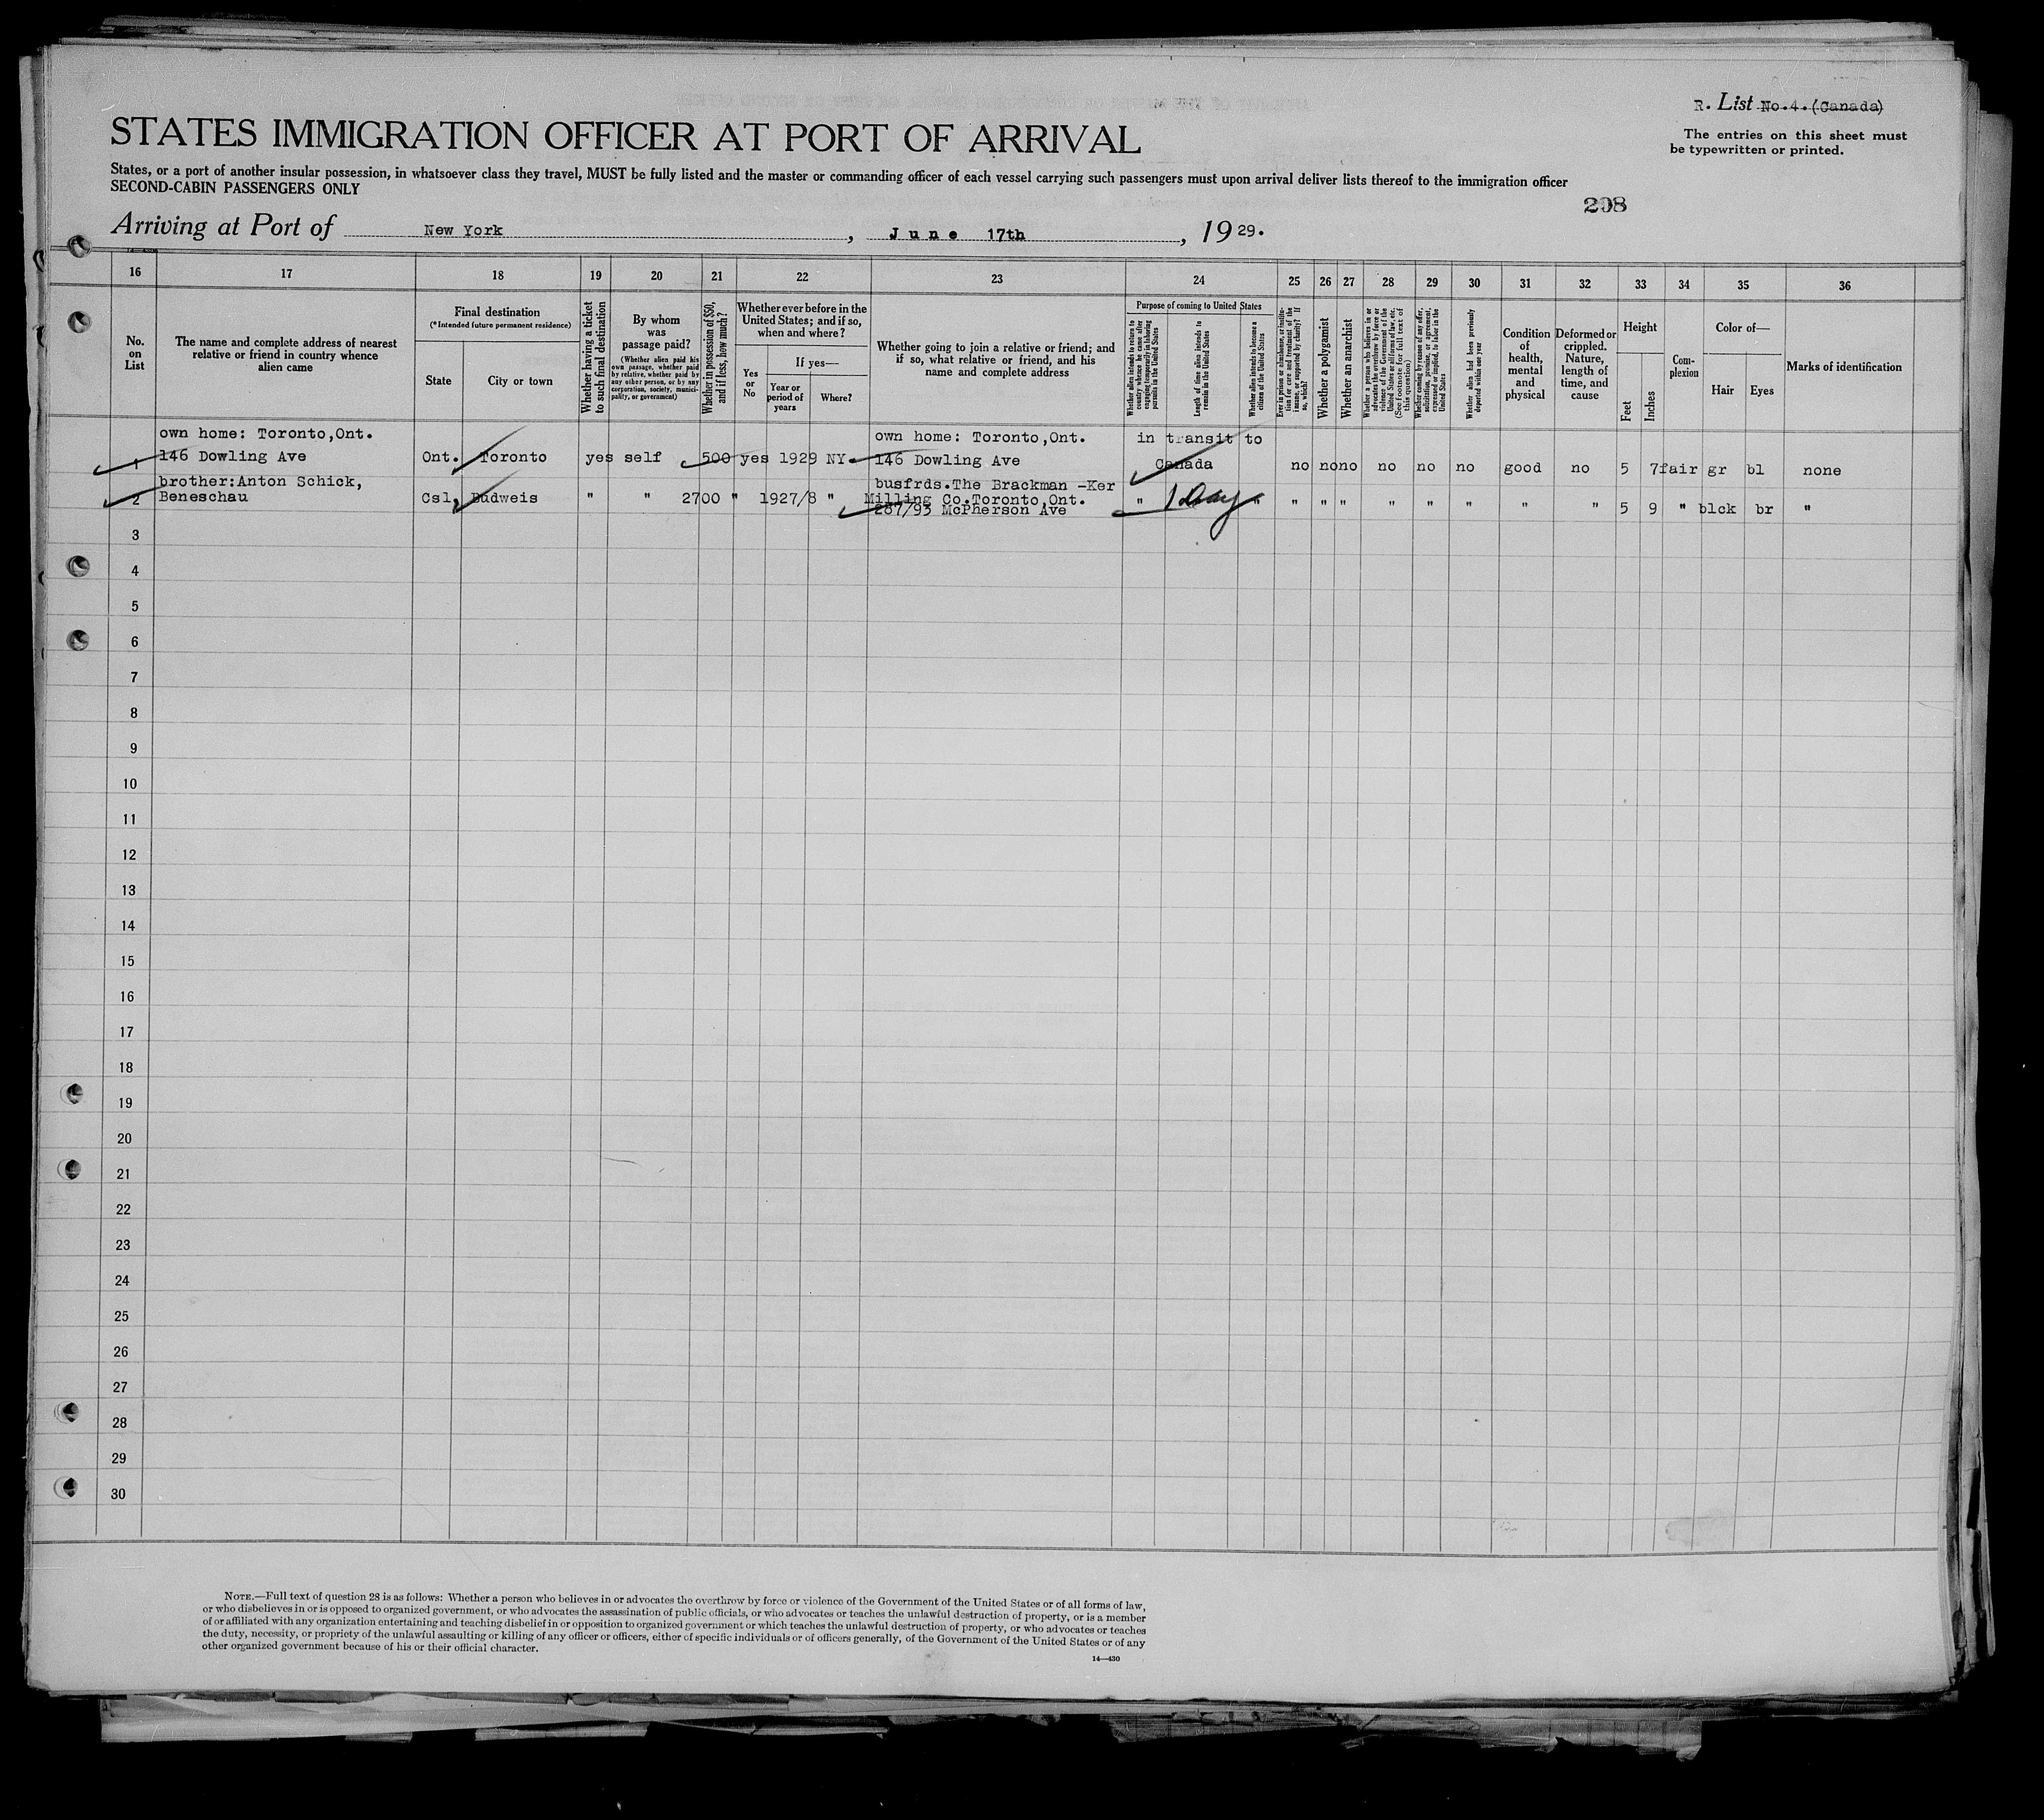 R. List No.4.(Canada)
The entries on this sheet must
be typewritten or printed.
STATES IMMIGRATION OFFICER AT PORT OF ARRIVAL
States, or a port of another insular possession, in whatsoever class they travel, MUST be fully listed and the master or commanding officer of each vessel carrying such passengers must upon arrival deliver lists thereof to the immigration officer
SECOND-CABIN PASSENGERS ONLY
208
Arriving at Port of New York, June 17th, 1929.
16 17 18 19 20 21 22 23 24 25 26 27 28 29 30 31 32 33 34 35 36
No.
on
List
The name and complete address of nearest
relative or friend in country whence
alien came
Final destination
(*Intended future permanent residence)
State
City or town
Whether having a ticket
to such final destination
By whom
was
passage paid?
(Whether alien paid his
own passage, whether paid
by relative, whether paid by
any other person, or by any
corporation, society, munici-
pality, or government)
Whether in possession of $50,
and if less, how much?
Whether ever before in the
United States; and if so,
when and where?
Yes
or
No
If yes—
Year or
period of
years
Where?
Whether going to join a relative or friend; and
if so, what relative or friend, and his
name and complete address
Purpose of coming to United States
Whether alien intends to return to
country whence he came after
engaging temporarily in laboring
pursuits in the United States
Length of time alien intends to
remain in the United States
Whether alien intends to become a
citizen of the United States
Ever in prison or almshouse, or institu-
tion for care and treatment of the
insane, or supported by charity? If
so, which?
Whether a polygamist
Whether an anarchist
Whether a person who believes in or
advocates the overthrow by force or
violence of the Government of the
United States or all forms of law, etc.
(See footnote for full text of
this question)
Whether coming by reason of any offer,
solicitation, promise, or agreement,
expressed or implied, to labor in the
United States
Whether alien had been previously
deported within one year
Condition
of
health,
mental
and
physical
Deformed or
crippled.
Nature,
length of
time, and
cause
Height
Feet
Inches
Com-
plexion
Color of—
Hair
Eyes
Marks of identification
own home: Toronto,Ont. own home: Toronto,Ont. in transit to
1 146 Dowling Ave Ont. Toronto yes self 500 yes 1929 NY 146 Dowling Ave Canada no no no no no no good no 5 7 fair gr bl none
brother:Anton Schick, busfrds.The Brackman -Ker
2 Beneschau Csl, Budweis " " 2700 " 1927/8 " Milling Co.Toronto,Ont. " 1 Day " " " " " " " " " 5 9 " blck br "
287/93 McPherson Ave
3
4
5
6
7
8
9
10
11
12
13
14
15
16
17
18
19
20
21
22
23
24
25
26
27
28
29
30
NOTE.—Full text of question 28 is as follows: Whether a person who believes in or advocates the overthrow by force or violence of the Government of the United States or of all forms of law,
or who disbelieves in or is opposed to organized government, or who advocates the assassination of public officials, or who advocates or teaches the unlawful destruction of property, or is a member
of or affiliated with any organization entertaining and teaching disbelief in or opposition to organized government or which teaches the unlawful destruction of property, or who advocates or teaches
the duty, necessity, or propriety of the unlawful assaulting or killing of any officer or officers, either of specific individuals or of officers generally, of the Government of the United States or of any
other organized government because of his or their official character.
14—430